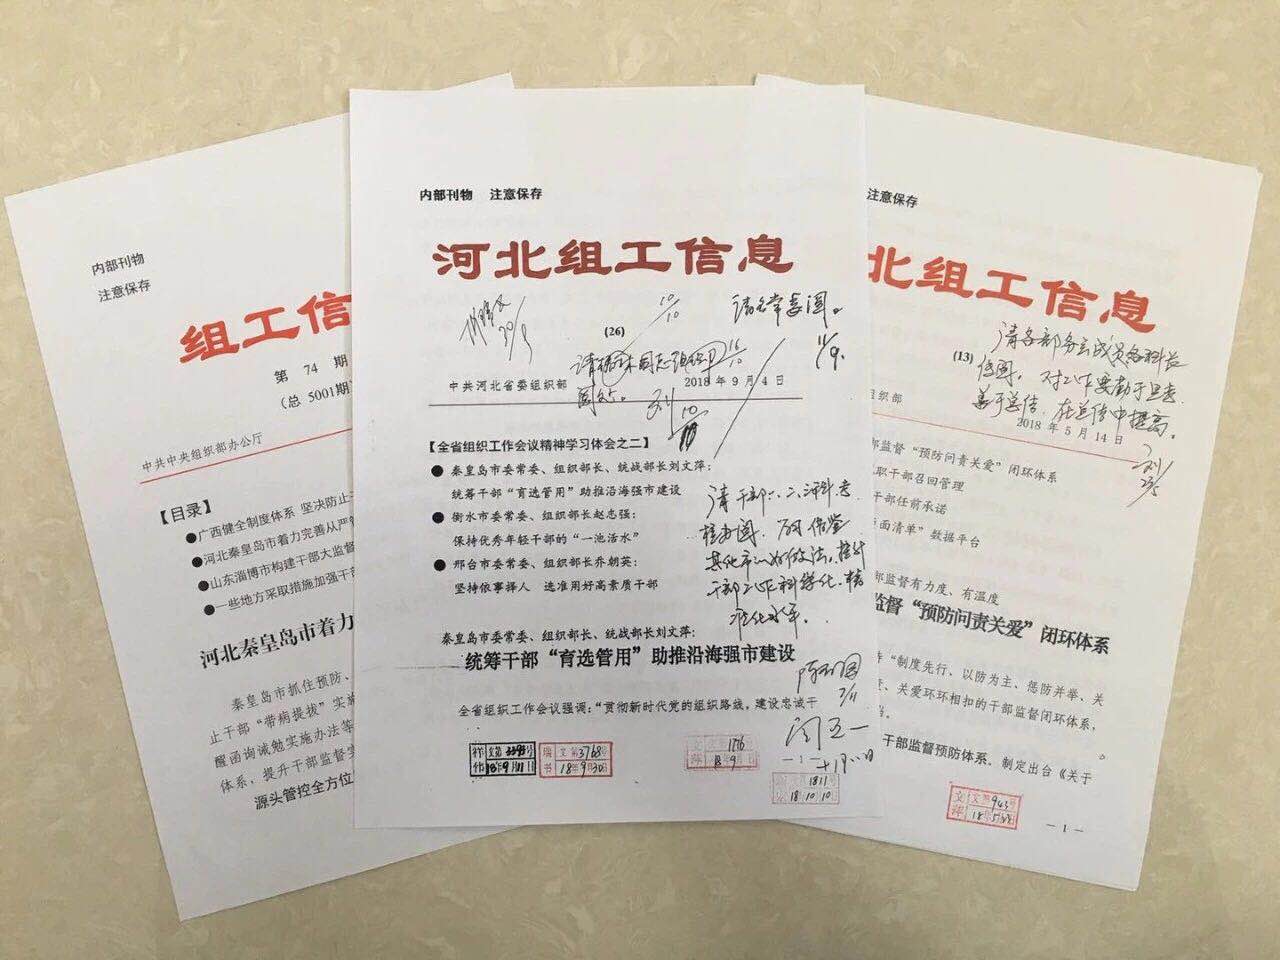 内部刊物
注意保存
组工信
第 74 期
（总 5001期）
中共中央组织部办公厅
【目录】
●广西健全制度体系 坚决防止
●河北秦皇岛市着力完善从严
●山东淄博市构建干部大监督
●一些地方采取措施加强干
河北秦皇岛市着力
秦皇岛市抓住预防、
止干部“带病提拔”实施
醒函询诫勉实施办法等
体系，提升干部监督实
源头管控全方位
内部刊物 注意保存
河北组工信息
(26)
10/10
请各常委阅。
11/9.
中共河北省委组织部
2018 年 9 月 4 日
【全省组织工作会议精神学习体会之二】
● 秦皇岛市委常委、组织部长、统战部长刘文萍：
统筹干部“育选管用”助推沿海强市建设
● 衡水市委常委、组织部长赵忠强：
保持优秀年轻干部的“一池活水”
● 邢台市委常委、组织部长乔朝英：
坚持依事择人 选准用好高素质干部
请干部一、二、
阅。 借鉴
其他市的好做法，提升
干部工作科学化、
准化水平。
秦皇岛市委常委、组织部长、统战部长刘文萍：
统筹干部“育选管用”助推沿海强市建设
全省组织工作会议强调：“贯彻新时代党的组织路线，建设忠诚干
18年9月11日
文第3768号
18年9月30日
－1－
1811
18 10 10
注意保存
北组工信息
(13)
请各部务会成员各科长
传阅。对工作要勤于思考
善于总结，在总结中提高。
组织部
2018 年 5 月 14 日
部监督“预防问责关爱”闭环体系
职干部召回管理
干部任前承诺
面清单”数据平台
部监督有力度、有温度
监督“预防问责关爱”闭环体系
“制度先行、以防为主、惩防并举、关
、关爱环环相扣的干部监督闭环体系，
干部监督预防体系。制定出台《关于
文第943号
－1－